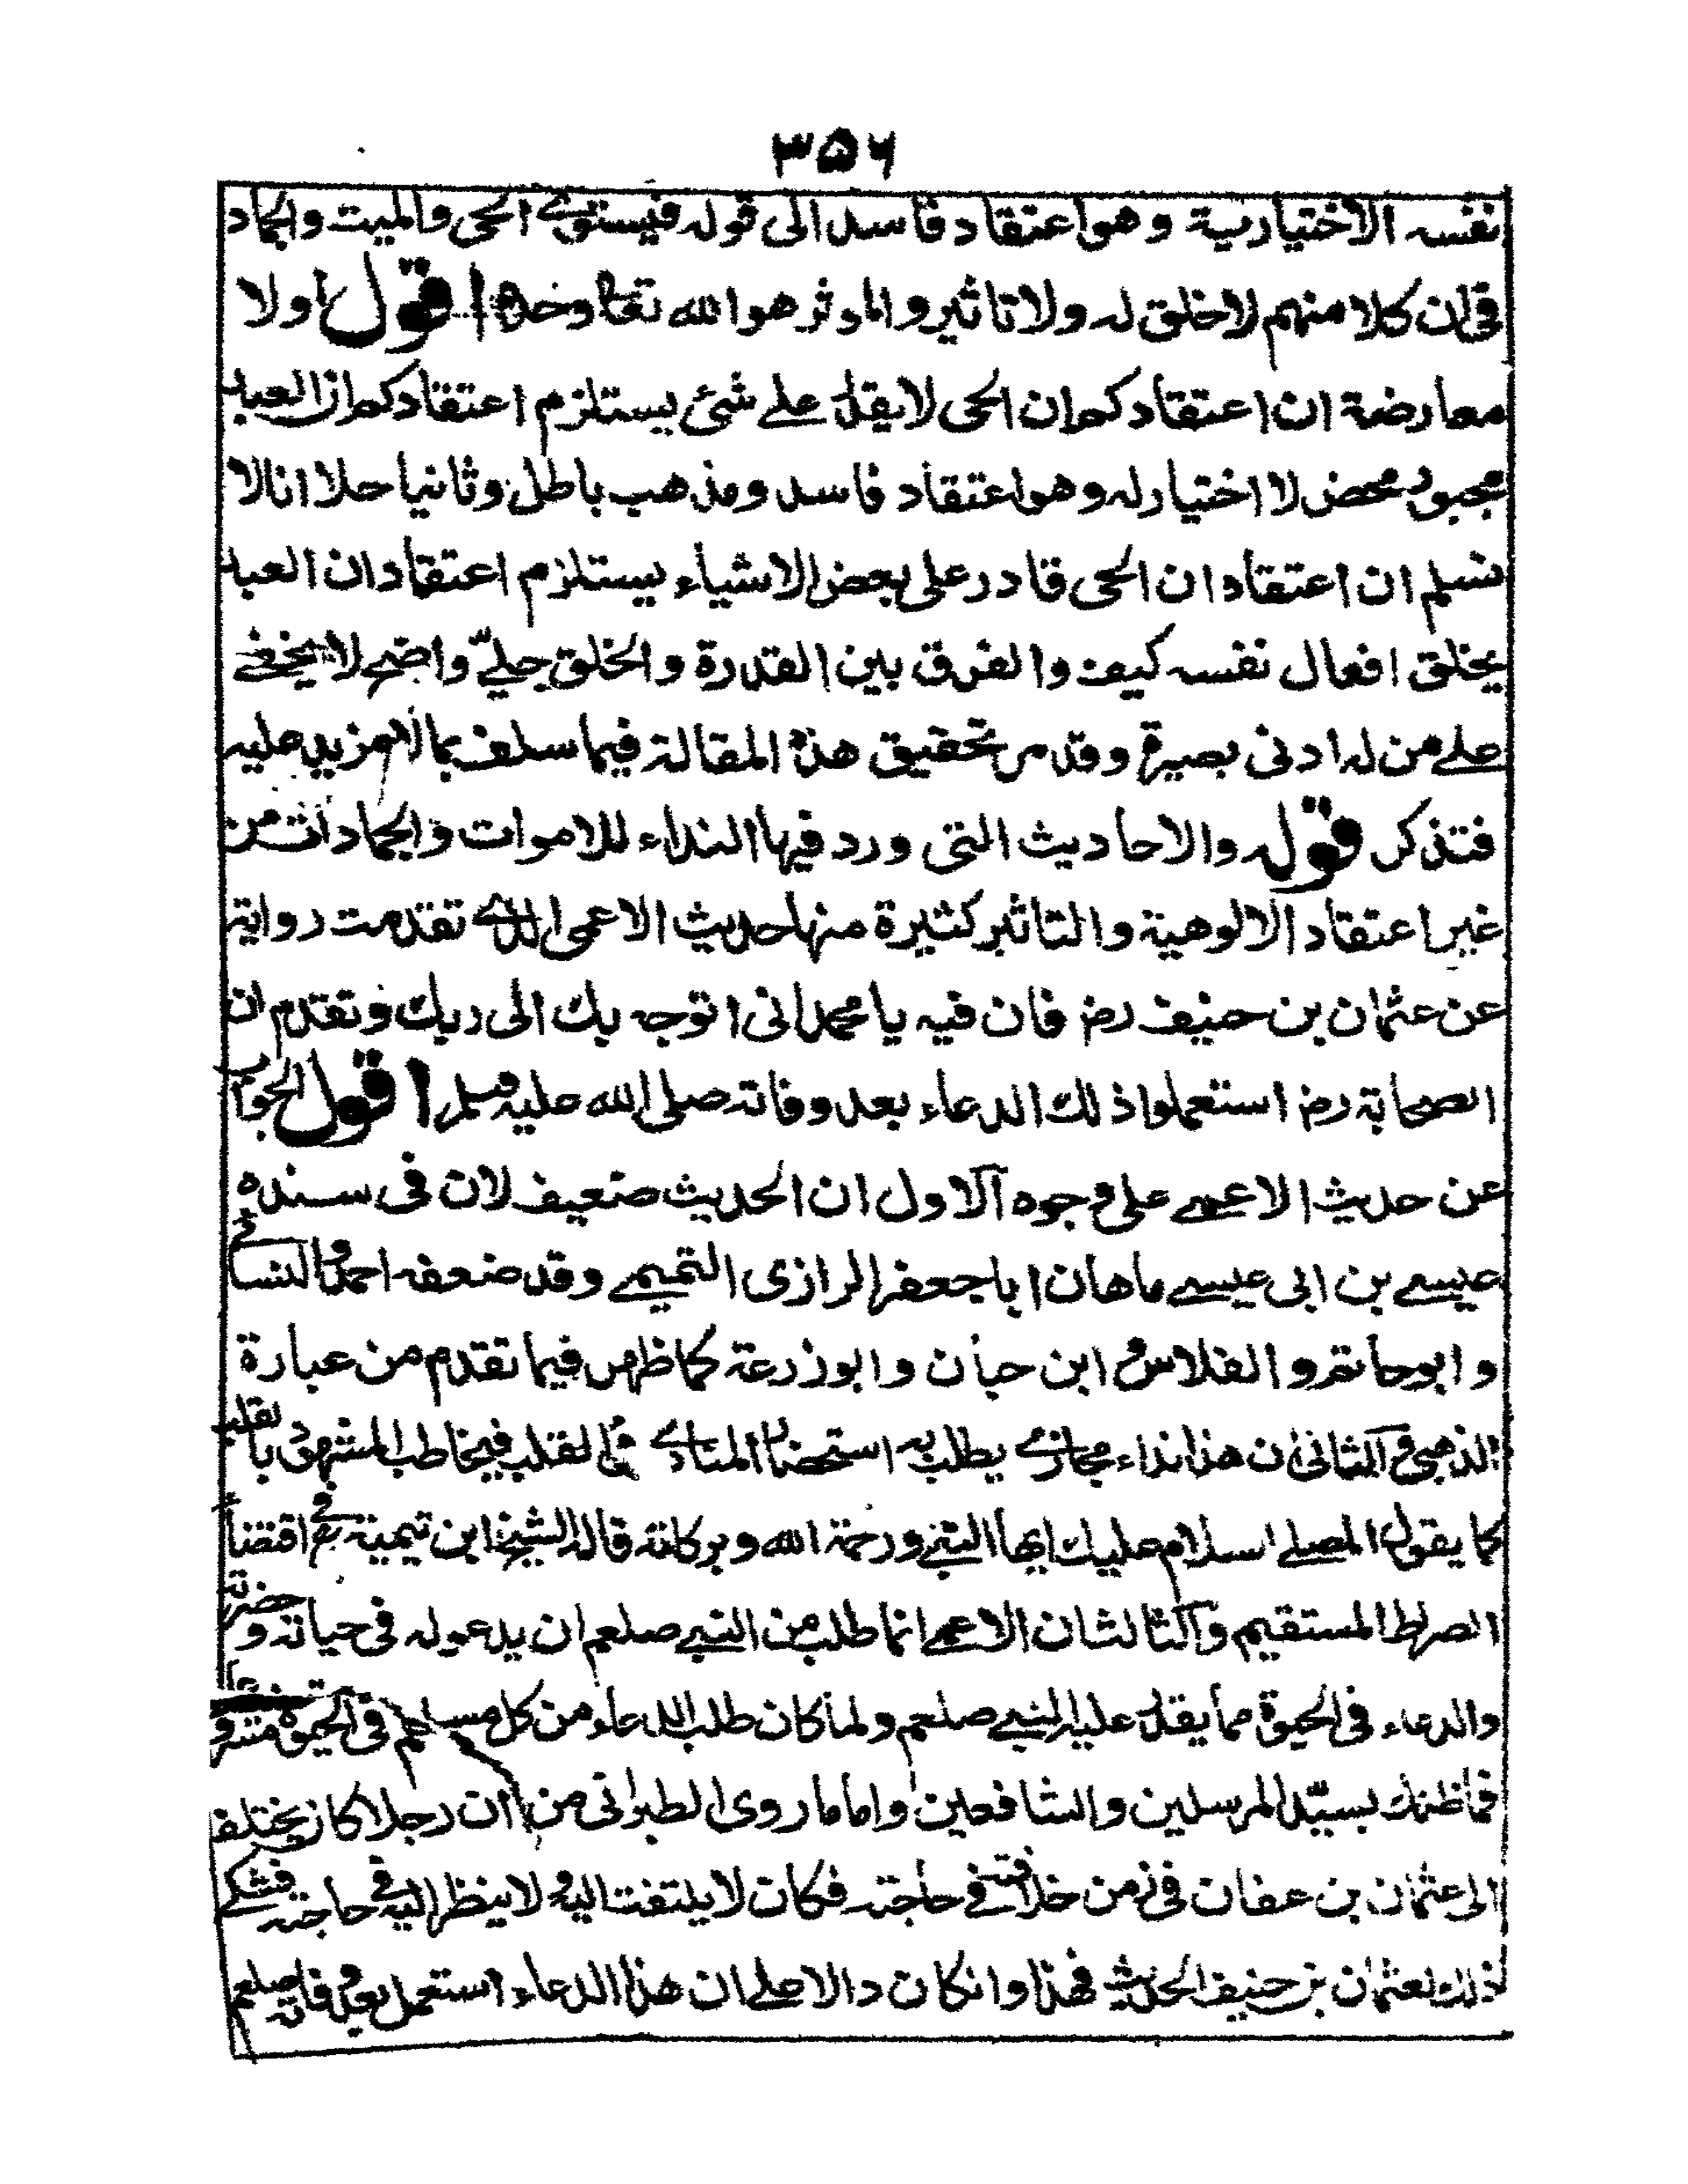 ۳۵۶
نفسه الاختيارية وهو اعتقاد فاسد الى قوله فيستوے الحى والميت والجماد
فى ان كلا منهم لا خلق له ولا تاثير والموثر هو الله تعالى وحده اقول اولا
معارضة ان اعتقادكم ان الحى لا يقدر علے شئ يستلزم اعتقادكم ان العبد
مجبور محض لا اختيار له وهو اعتقاد فاسد ومذهب باطل وثانيا حلا انا لا
نسلم ان اعتقاد ان الحى قادر على بعض الاشياء يستلزم اعتقاد ان العبد
يخلق افعال نفسه كيف والفرق بين القدرة والخلق جليّ واضح لا يخفے
علے من له ادنى بصيرة وقد مر تحقيق هذه المقالة فيما سلف بما لا مزيد عليه
فتذكر قوله والاحاديث التى ورد فيها النداء للاموات والجمادات من
غير اعتقاد الالوهية والتاثير كثيرة منها حديث الاعمى الذے تقدمت روايته
عن عثمان بن حنيف رض فان فيه يا محمد انى اتوجه بك الى ربك وتقدم ان
الصحابة رض استعملوا ذلك الدعاء بعد وفاته صلى الله عليه وسلم اقول الجواب
عن حديث الاعمے على وجوه الاول ان الحديث ضعيف لان فى سنده
عيسے بن ابى عيسے ماهان ابا جعفر الرازى التميمے وقد ضعفه احمد والنسائے
وابو حاتم والفلاس وابن حبان وابو زرعة كما ظهر فيما تقدم من عبارة
الذهبى والثانى ان هذا نداء مجازے يطلب به استحضار المنادے فى القلب فيخاطب المشهود بالقلب
كما يقول المصلے السلام عليك ايها النبے ورحمة الله وبركاته قاله الشيخ ابن تيمية فے اقتضاء
الصراط المستقيم والثالث ان الاعمے انما طلب من النبے صلعم ان يدعو له فى حياته وحضرته
والدعاء فى الحيوة مما يقدر عليه النبے صلعم ولما كان طلب الدعاء من كل مسلم فى الحيوة
فما ظنك بسيّد المرسلين والشافعين واما ما روى الطبرانى من ان رجلا كان يختلف
الى عثمان بن عفان فى زمن خلافته فے حاجته فكان لا يلتفت اليه ولا ينظر اليه فے حاجته فشكے
ذلك لعثمان بن حنيف الحديث فهذا وانكان دالا علے ان هذا الدعاء استعمل بعد وفاته صلعم